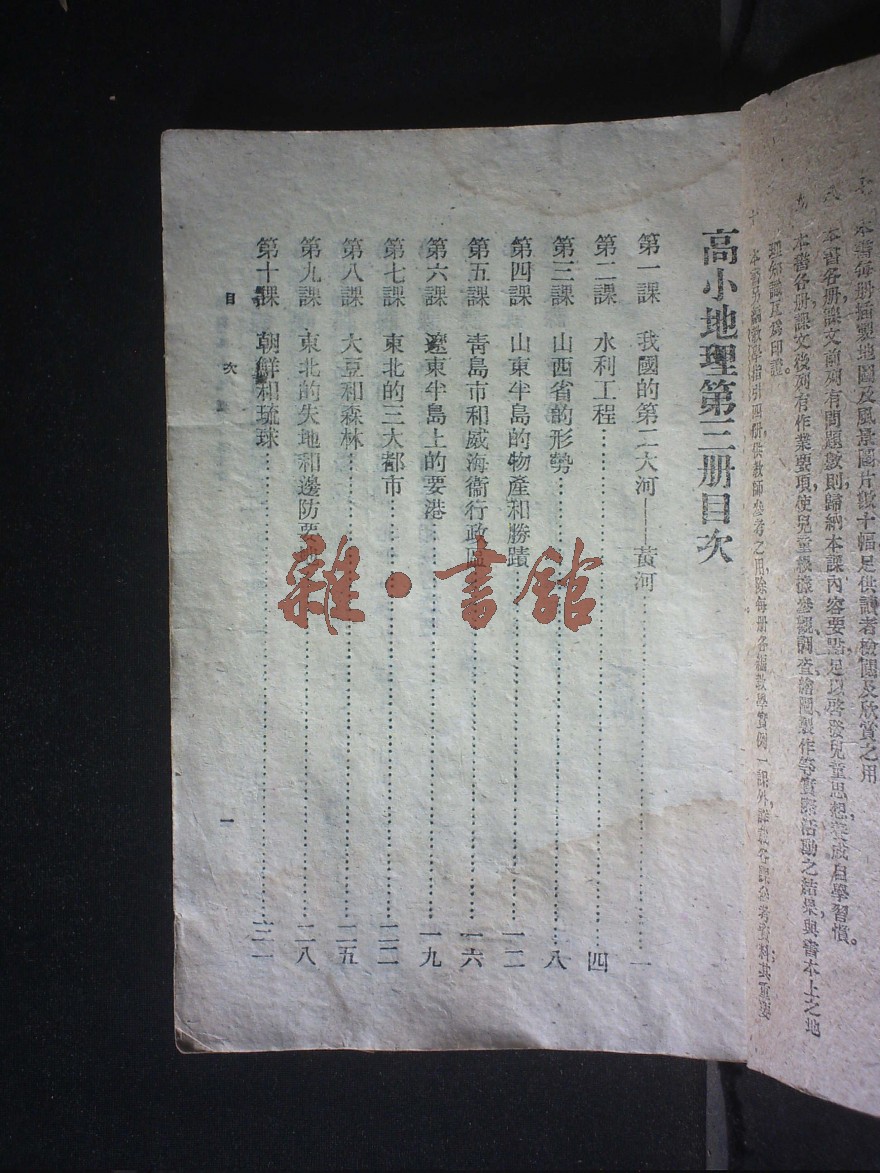 七　本書每册插製地圖及風景圖片數十幅，足供讀者檢閱及欣賞之用
八　本書各册課文前列有問題數則，歸納本課內容要點，足以啓發兒童思想，養成自學習慣。
九　本書各册課文後列有作業要項，使兒童根據參觀調查繪圖製作等實際活動之結果，與書本上之地
理知識互爲印證。
十　本書另編教學指引四册，供教師參考之用，除每册各編教學實例一課外，
高小地理第三册目次
第一課　我國的第二大河——黃河……一
第二課　水利工程……四
第三課　山西省的形勢……八
第四課　山東半島的物產和勝蹟……一二
第五課　青島市和威海衞行政區……一六
第六課　遼東半島上的要港……一九
第七課　東北的三大都市……二二
第八課　大豆和森林……二五
第九課　東北的失地和邊防要……二八
第十課　朝鮮和琉球……三一
目次
一
雜·書館